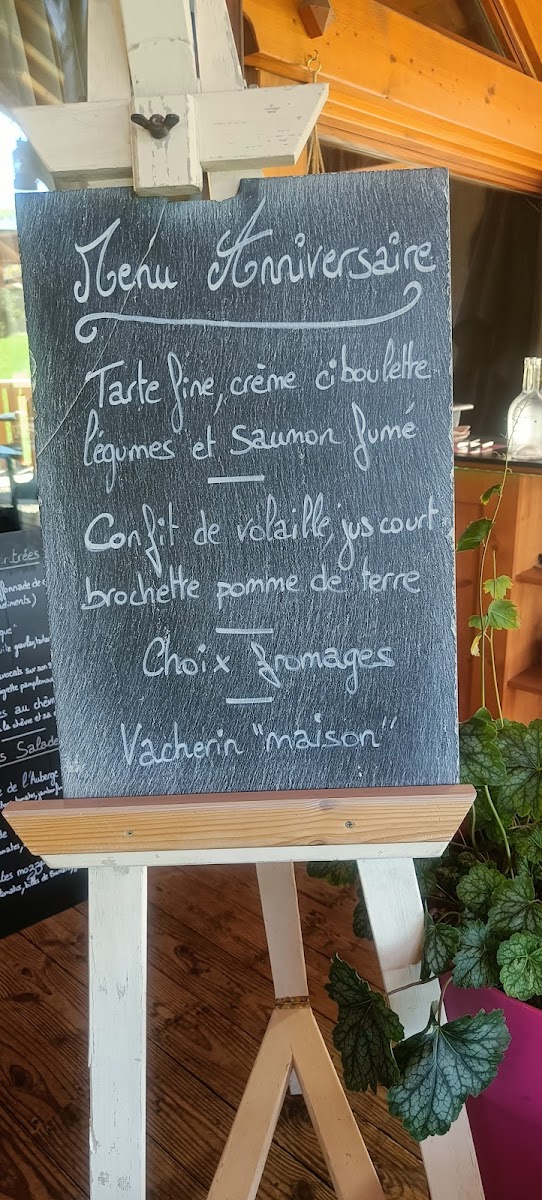 Menu Anniversaire
Tarte fine, crème ciboulette
légumes et saumon fumé
Confit de volaille, jus court
brochette pomme de terre
Choix fromages
Vacherin "maison"
trées
s Salade
de l'Auberge